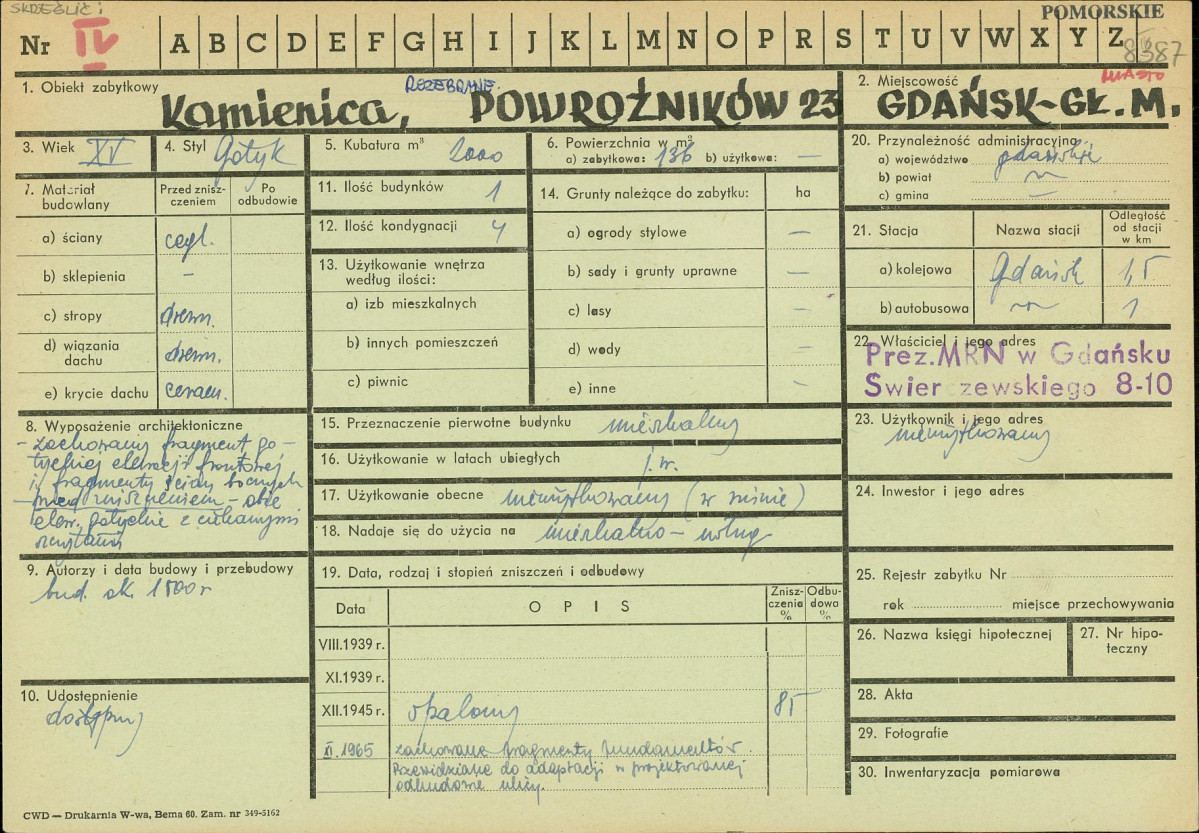 SKREŚLIĆ!
POMORSKIE
Nr IV A B C D E F G H I J K L M N O P R S T U V W X Y Z
8387
1. Obiekt zabytkowy
ROZEBRANE
Kamienica, POWROŹNIKÓW 23
2. Miejscowość
MIASTO
GDAŃSK-GŁ. M.
3. Wiek XV
4. Styl Gotyk
5. Kubatura m³ 2000
6. Powierzchnia w m²
a) zabytkowa: 136 b) użytkowa: —
20. Przynależność administracyjna
a) województwo gdańskie
b) powiat
c) gmina —
7. Materiał budowlany
Przed zniszczeniem
Po odbudowie
a) ściany cegl.
b) sklepienia –
c) stropy drewn.
d) wiązania dachu drewn.
e) krycie dachu ceram.
11. Ilość budynków 1
12. Ilość kondygnacji 4
13. Użytkowanie wnętrza
według ilości:
a) izb mieszkalnych
b) innych pomieszczeń
c) piwnic
14. Grunty należące do zabytku: ha
a) ogrody stylowe —
b) sady i grunty uprawne —
c) lasy –
d) wody –
e) inne –
21. Stacja Nazwa stacji Odległość od stacji w km
a) kolejowa Gdańsk 1,5
b) autobusowa 1
22. Właściciel i jego adres
Prez. MRN w Gdańsku
Swierczewskiego 8-10
8. Wyposażenie architektoniczne
- zachowany fragment go-
tyckiej elewacji frontowej
i fragmenty ściany bocznych
- przed zniszczeniem - obie
elew. gotyckie z
szczytami
15. Przeznaczenie pierwotne budynku mieszkalny
16. Użytkowanie w latach ubiegłych j.w.
17. Użytkowanie obecne nieużytkowany (w ruinie)
18. Nadaje się do użycia na mieszkalno - usług
23. Użytkownik i jego adres
nieużytkowany
24. Inwestor i jego adres
9. Autorzy i data budowy i przebudowy
bud. ok. 1500 r
10. Udostępnienie
dostępny
19. Data, rodzaj i stopień zniszczeń i odbudowy
Data O P I S Zniszczenia % Odbudowa %
VIII.1939 r.
XI.1939 r.
XII.1945 r. spalony 85
XI.1965 zachowane fragmenty fundamentów.
Przewidziane do adaptacji w projektowanej
odbudowie ulicy.
25. Rejestr zabytku Nr
rok miejsce przechowywania
26. Nazwa księgi hipotecznej
27. Nr hipoteczny
28. Akta
29. Fotografie
30. Inwentaryzacja pomiarowa
CWD — Drukarnia W-wa, Bema 60. Zam. nr 349-5162